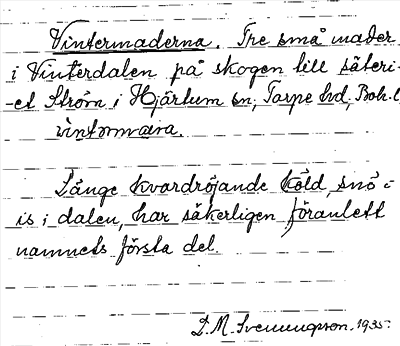 Vintermaderna. Tre små mader
i Vinterdalen på skogen till säteri-
-et Ström i Hjärtum sn, Torpe hd, Boh. l.
vintərmɑra.
Länge kvardröjande köld, snö o
is i dalen, har säkerligen föranlett
namnets första del.
D. M. Svenungsson. 1935.